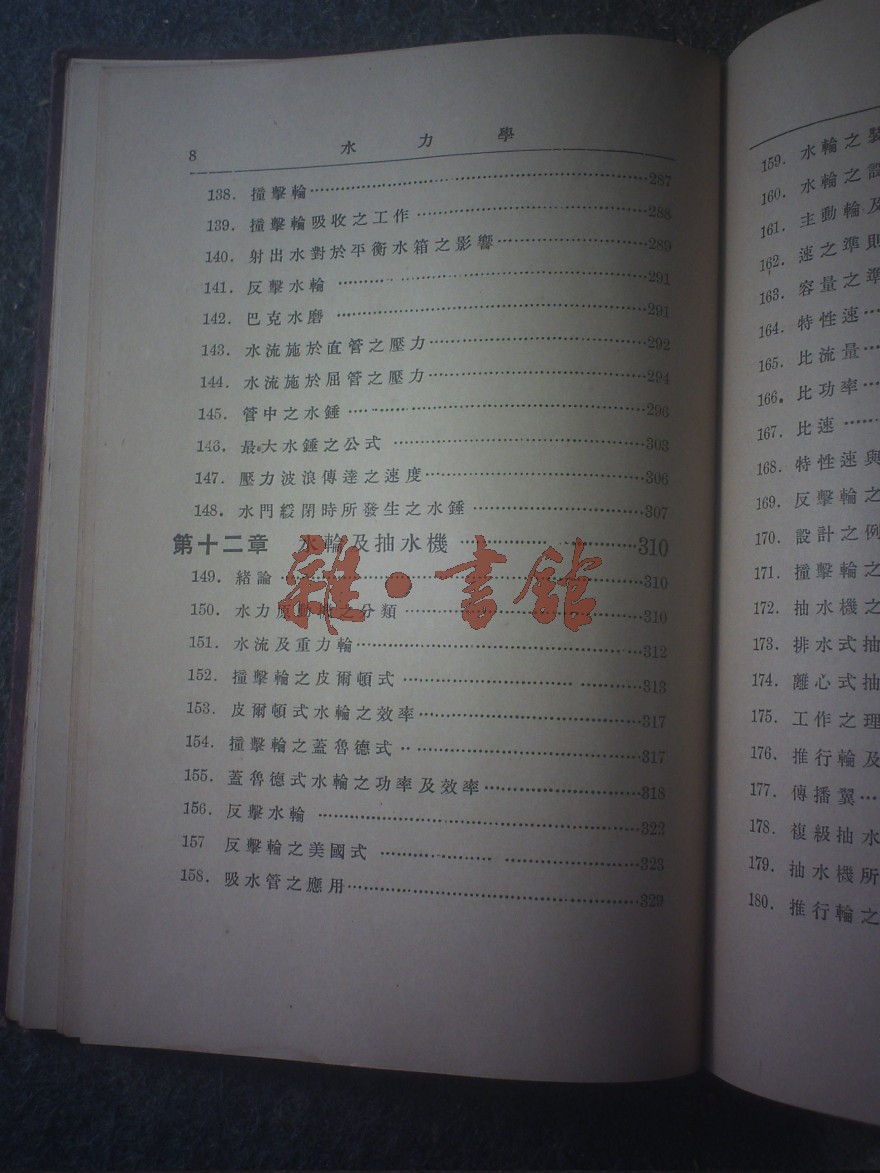 8 水力學
138. 撞擊輪……287
139. 撞擊輪吸收之工作……288
140. 射出水對於平衡水箱之影響……289
141. 反擊水輪……291
142. 巴克水磨……291
143. 水流施於直管之壓力……292
144. 水流施於屈管之壓力……294
145. 管中之水錘……296
146. 最大水錘之公式……303
147. 壓力波浪傳達之速度……306
148. 水門緩閉時所發生之水錘……307
第十二章 水輪及抽水機……310
149. 緒論……310
150. 水力原動機之分類……310
151. 水流及重力輪……312
152. 撞擊輪之皮爾頓式……313
153. 皮爾頓式水輪之效率……317
154. 撞擊輪之蓋魯德式……317
155. 蓋魯德式水輪之功率及效率……318
156. 反擊水輪……322
157 反擊輪之美國式……323
158. 吸水管之應用……329
雜·書館
159. 水輪之裝
160. 水輪之設
161. 主動輪及
162. 速之準則
163. 容量之準
164. 特性速…
165. 比流量…
166. 比功率…
167. 比速……
168. 特性速與
169. 反擊輪之
170. 設計之例
171. 撞擊輪之
172. 抽水機之
173. 排水式抽
174. 離心式抽
175. 工作之理
176. 推行輪及
177. 傳播翼…
178. 複級抽水
179. 抽水機所
180. 推行輪之